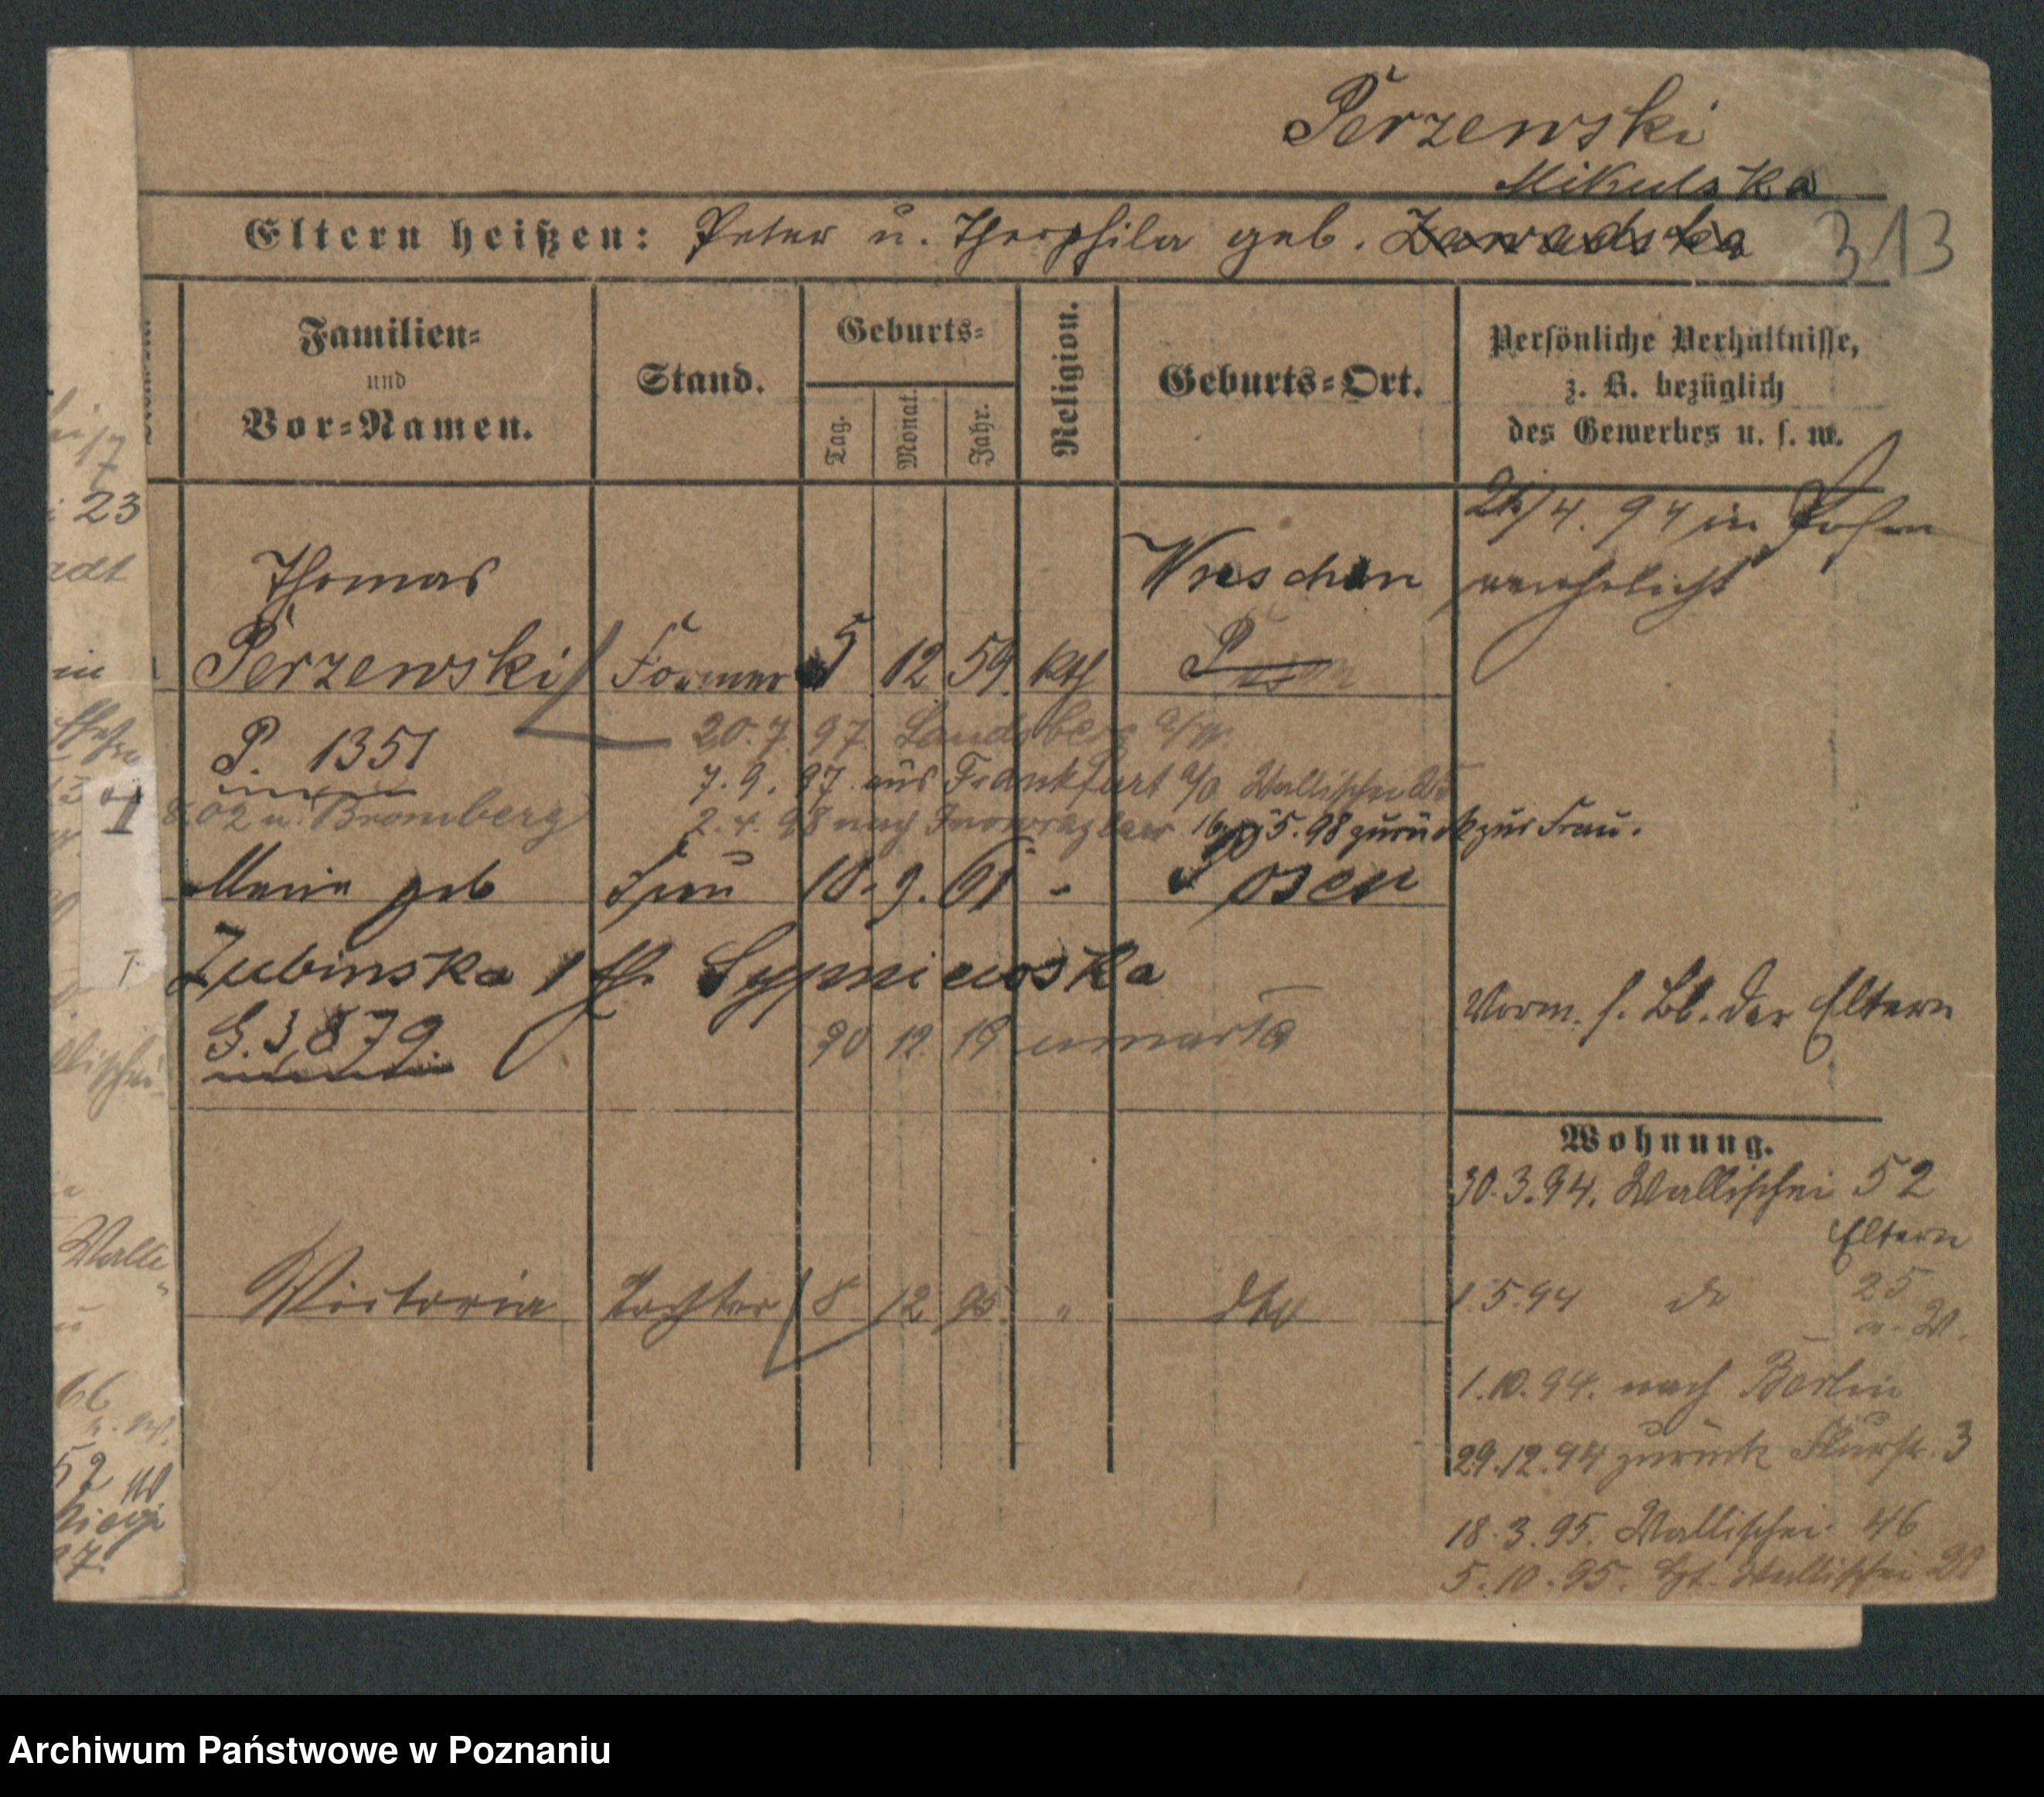 Perzewski
Mikulska
Eltern heißen: Peter u. Theophila geb. Zawadska 313
Familien=
und
Vor=Namen.
Stand.
Geburts=
Tag.
Monat.
Jahr.
Religion.
Geburts=Ort.
Persönliche Verhältnisse,
z. B. bezüglich
des Gewerbes u. s. w.
23
adt
in
Thomas
Wreschen
/4. 94 in Posen
verehelicht
Perzewski Former 5 12 59 kth
P. 1351
20. 7. 97. Landsberg a/W.
7. 9. 97. aus Frankfurt a/O Wallischei
02 n. Bromberg
2. 4. 98 nach Inowrazlaw 16/5. 98 zurück zur Frau.
Marie geb Frau 10. 9. 61 - Posen
Zubinska
G. 3879.
90 12. 19 umarła
Vorm. s. Bl. der Eltern
Wohnung.
30. 3. 94. Wallischei 52
Eltern
1. 5. 94 do 25
n. W.
Walli
Victoria Tochter 8 12 95 " dto
1. 10. 94. nach Berlin
66
29. 12. 94 zurück Flurstr. 3
52
18. 3. 95. Wallischei 46
5. 10. 95. Wallischei
Archiwum Państwowe w Poznaniu